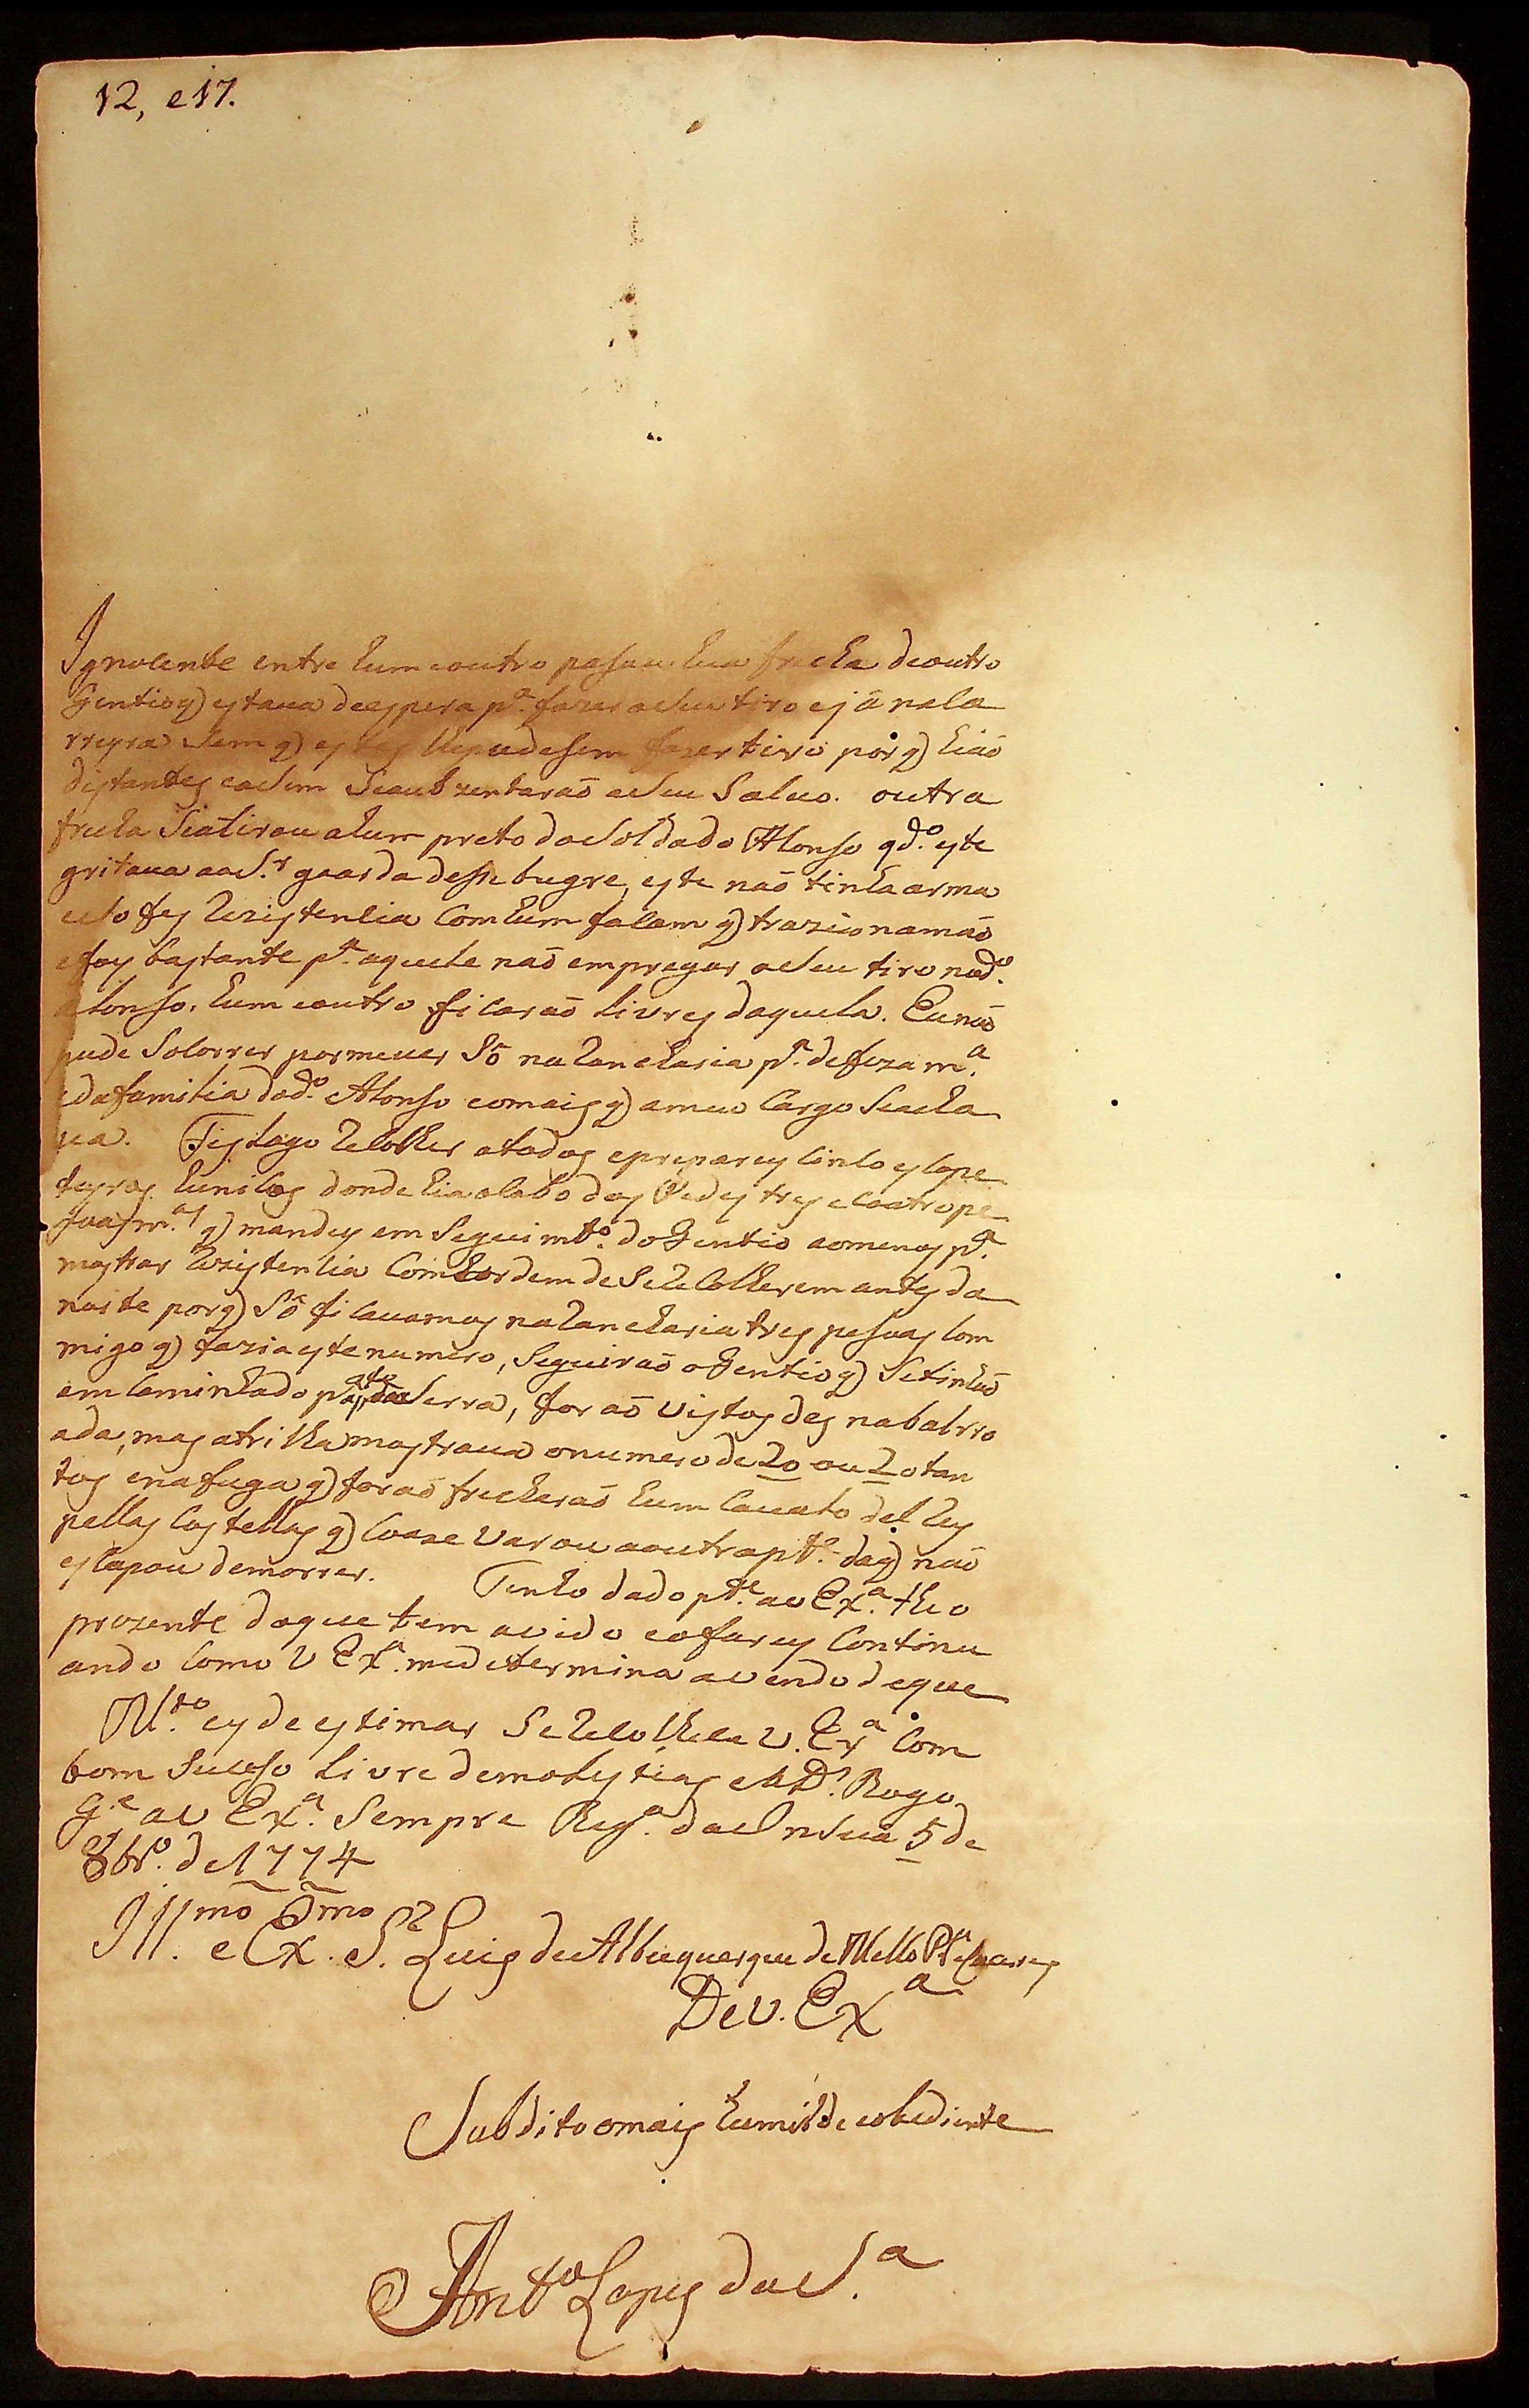 12, e 17.
Ignocente entre hum eoutro pasou hua frecha deoutro
Gentio q) estaua deespera pª. fazer oseu tiro ejá nela
rreyra sem q) estes lhepudesem fazer tiro por q) hiaõ
distantes easim seaubzentaraõ aseu saluo. outra
frecha seatirou ahum preto dosoldado Alonso qdº. este
gritaua aoS.r guarda desse bugre, este naõ tinha arma
eso fes rezistencia comhum facam q) trazia namaõ
efoy bastante pª. aquele naõ empregar oseu tiro nodº.
Alonso. hum eoutro ficaraõ livres daquela. Eunaõ
pude socorrer pormeuer só narancharia pª. defeza mª.
edafamilia dodº. Alonso eomais q) ameu cargo seacha
ua. Fis logo recolher atodos epreparey cinco escope
teyros hunicos donde hia ocabo dos Pedestres ecoatro pe
soas m.as q) mandey em seguimtº. doGentio aomenos pª.
mostrar rezistencia comhordem deserecolherem antes da
noite porq) só ficauamos narancharia tres pesoas com
migo q) fazia este numero, seguiraõ oGentio q) setinhaõ
emcaminhado pª apte da Serra, foraõ uistos des nabalrro
ada, mas atrilha mostraua onumero de 20 ou 20 tan
tos enafuga q) foraõ frecharaõ hum caualo del Rey
pellas costellas q) coaze uarou aoutra pte. doq) naõ
escapou demorrer. Tenho dado pte. aV Exª. the o
prezente doque tem auido eofarey continu
ando como V Exª. medetermina auendo deque
M.to ey de estimar serecolhese V. Exª com
bom suceso livre demolestias eaD.s Rogo
g.e aV Exª. sempre Regª. daInsua 5 de
8brº. de 1774
Ill.mo e Ex.mo S.r Luis deAlbuquerque deMello Prª eCaceres
DeV. Exª
Subdito omais humilde eobediente
Antº Lopes daS.ª